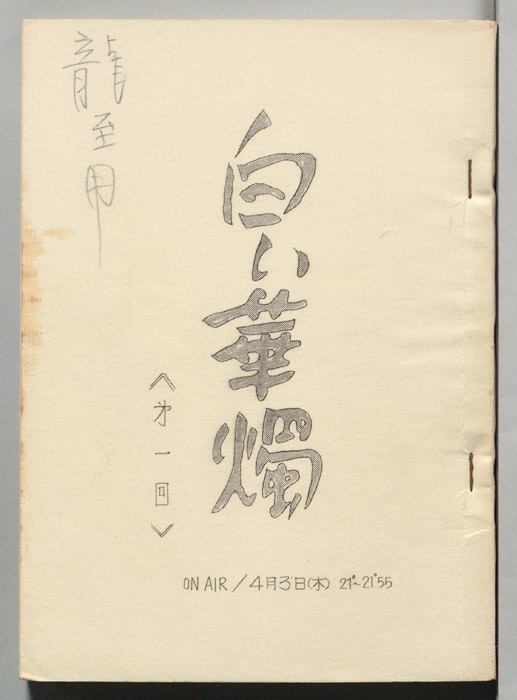 白い華燭
《第一回》
龍至用
ON AIR／4月3日(木) 21°～21°55